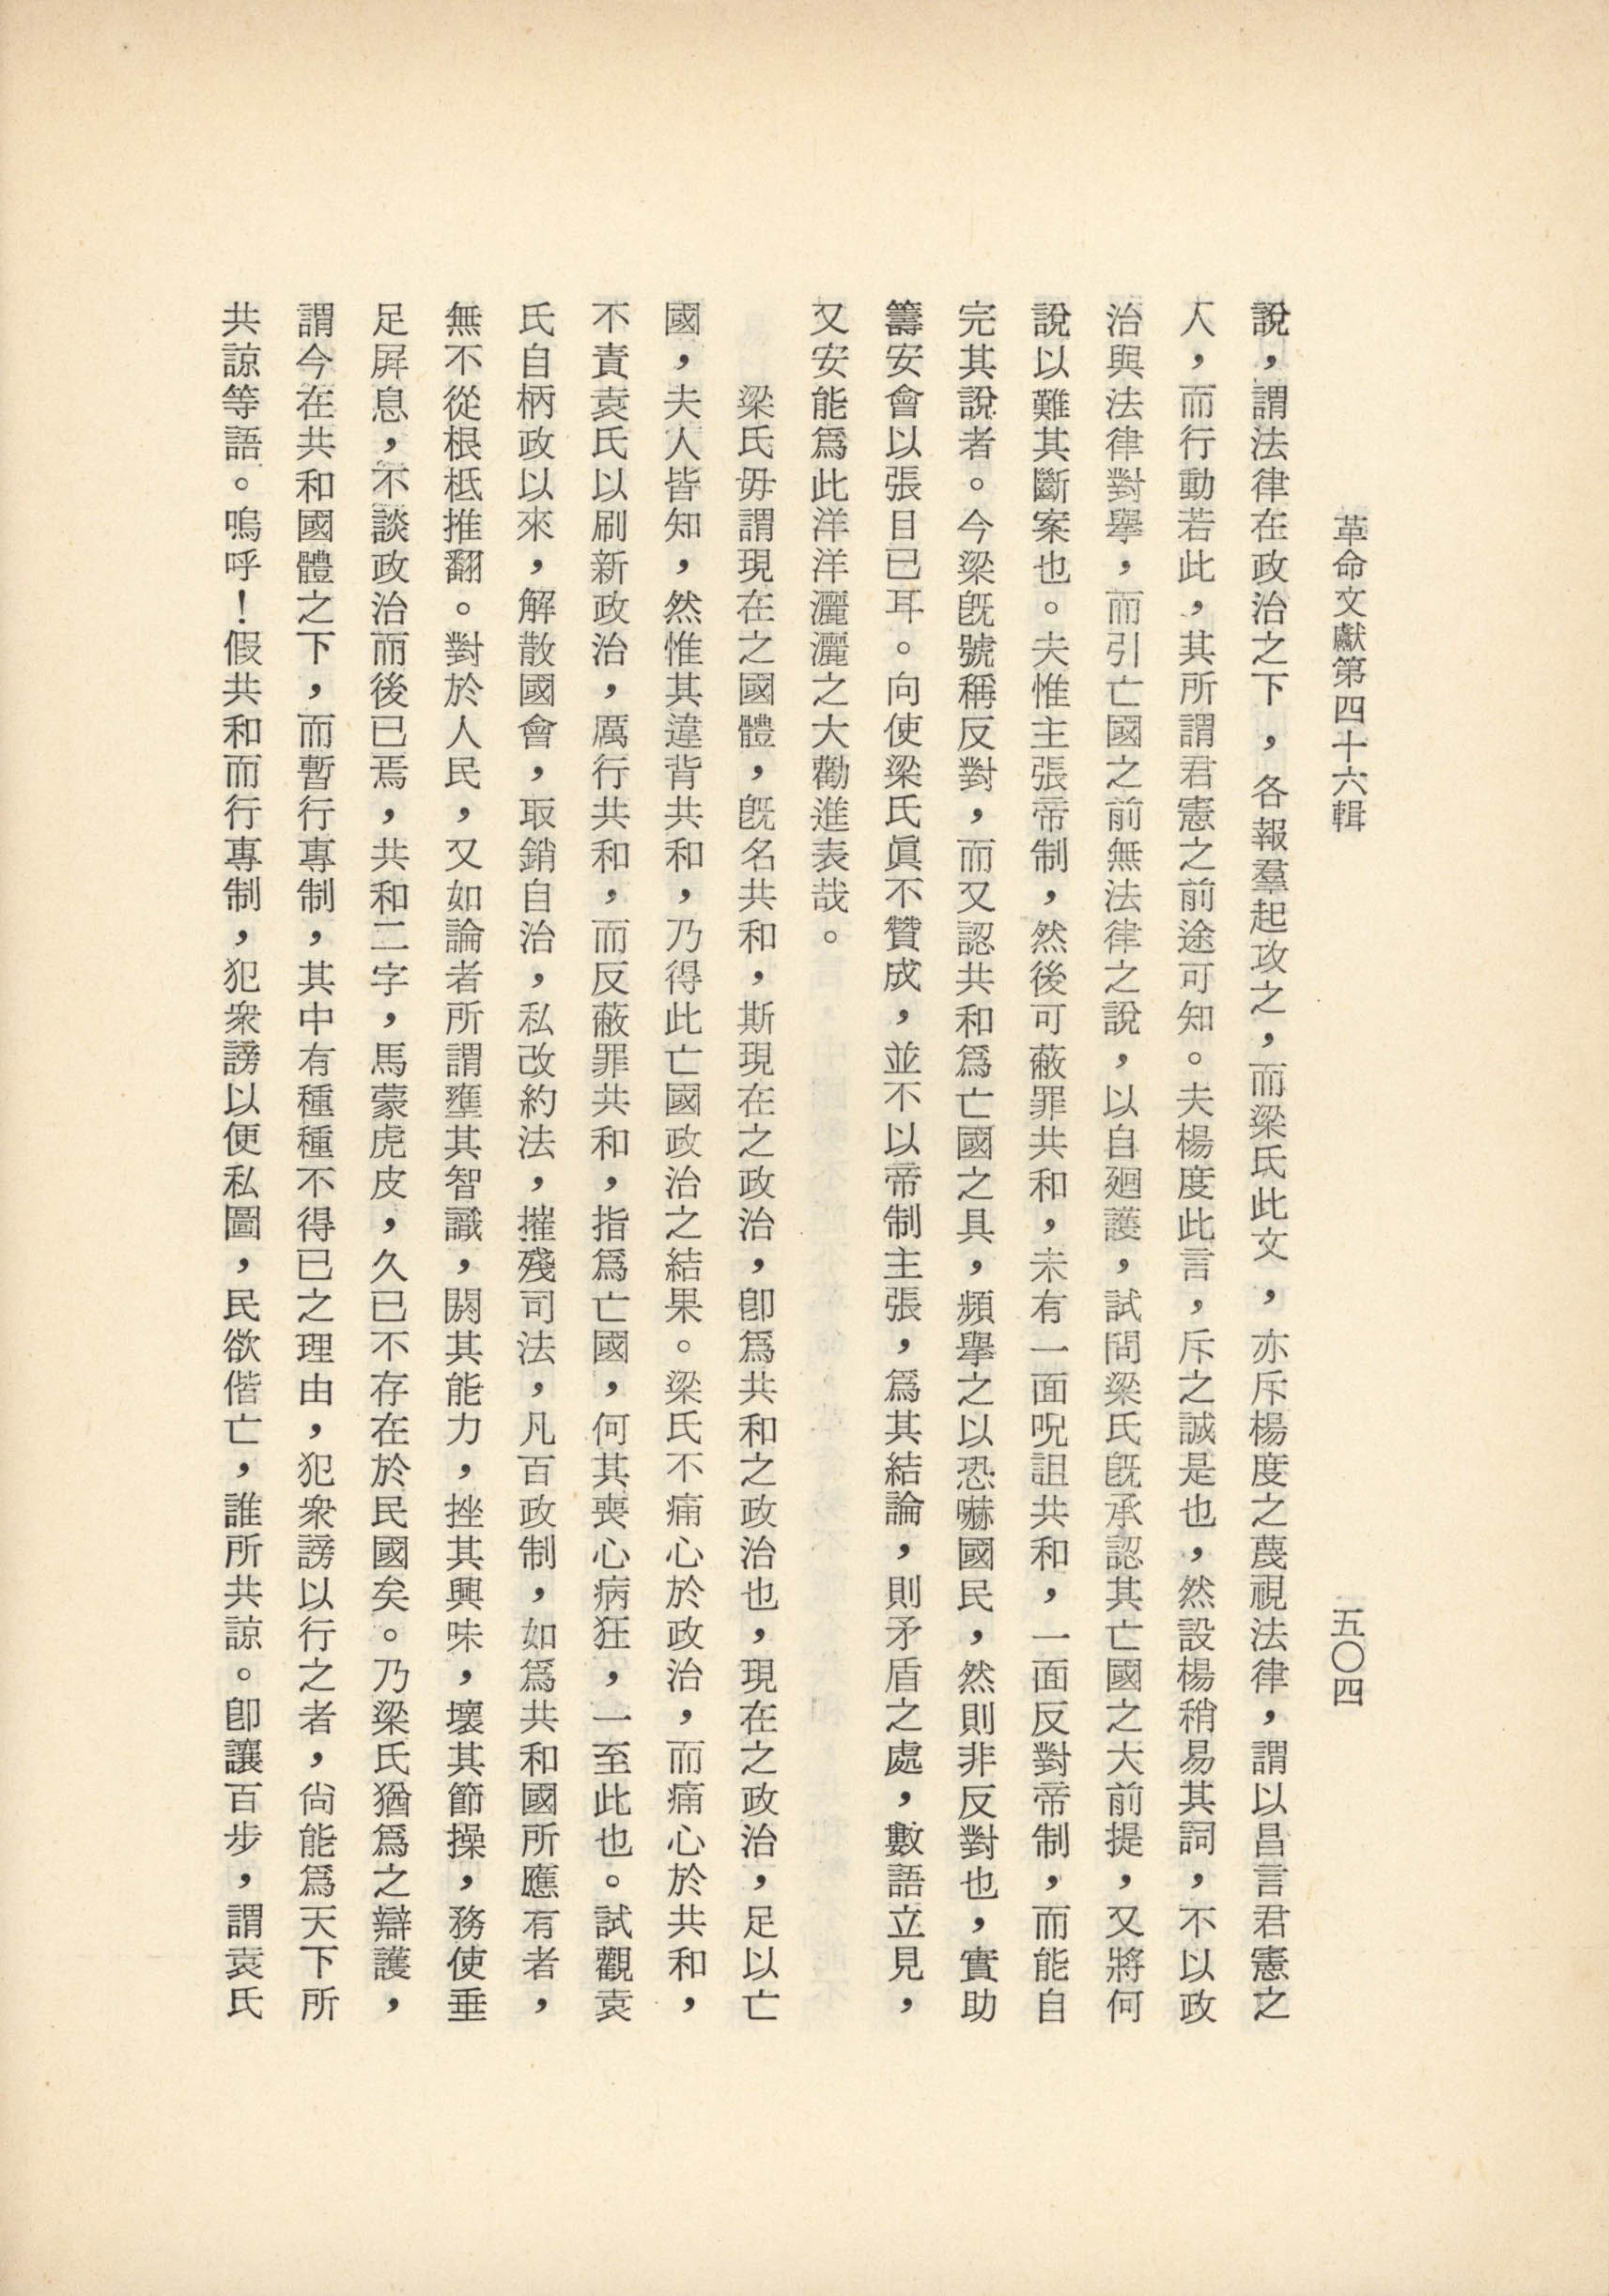 革命文獻第四十六輯
五〇四
說，謂法律在政治之下，各報羣起攻之，而梁氏此文，亦斥楊度之蔑視法律，謂以昌言君憲之
人，而行動若此，其所謂君憲之前途可知。夫楊度此言，斥之誠是也，然設楊稍易其詞，不以政
治與法律對舉，而引亡國之前無法律之說，以自廻護，試問梁氏既承認其亡國之大前提，又將何
說以難其斷案也。夫惟主張帝制，然後可蔽罪共和，未有一面呪詛共和，一面反對帝制，而能自
完其說者。今梁既號稱反對，而又認共和爲亡國之具，頻舉之以恐嚇國民，然則非反對也，實助
籌安會以張目已耳。向使梁氏眞不贊成，並不以帝制主張，爲其結論，則矛盾之處，數語立見，
又安能爲此洋洋灑灑之大勸進表哉。
梁氏毋謂現在之國體，既名共和，斯現在之政治，卽爲共和之政治也，現在之政治，足以亡
國，夫人皆知，然惟其違背共和，乃得此亡國政治之結果。梁氏不痛心於政治，而痛心於共和，
不責袁氏以刷新政治，厲行共和，而反蔽罪共和，指爲亡國，何其喪心病狂，一至此也。試觀袁
氏自柄政以來，解散國會，取銷自治，私改約法，摧殘司法，凡百政制，如爲共和國所應有者，
無不從根柢推翻。對於人民，又如論者所謂壅其智識，閼其能力，挫其興味，壞其節操，務使垂
足屛息，不談政治而後已焉，共和二字，馬蒙虎皮，久已不存在於民國矣。乃梁氏猶爲之辯護，
謂今在共和國體之下，而暫行專制，其中有種種不得已之理由，犯衆謗以行之者，尙能爲天下所
共諒等語。嗚呼！假共和而行專制，犯衆謗以便私圖，民欲偕亡，誰所共諒。卽讓百步，謂袁氏